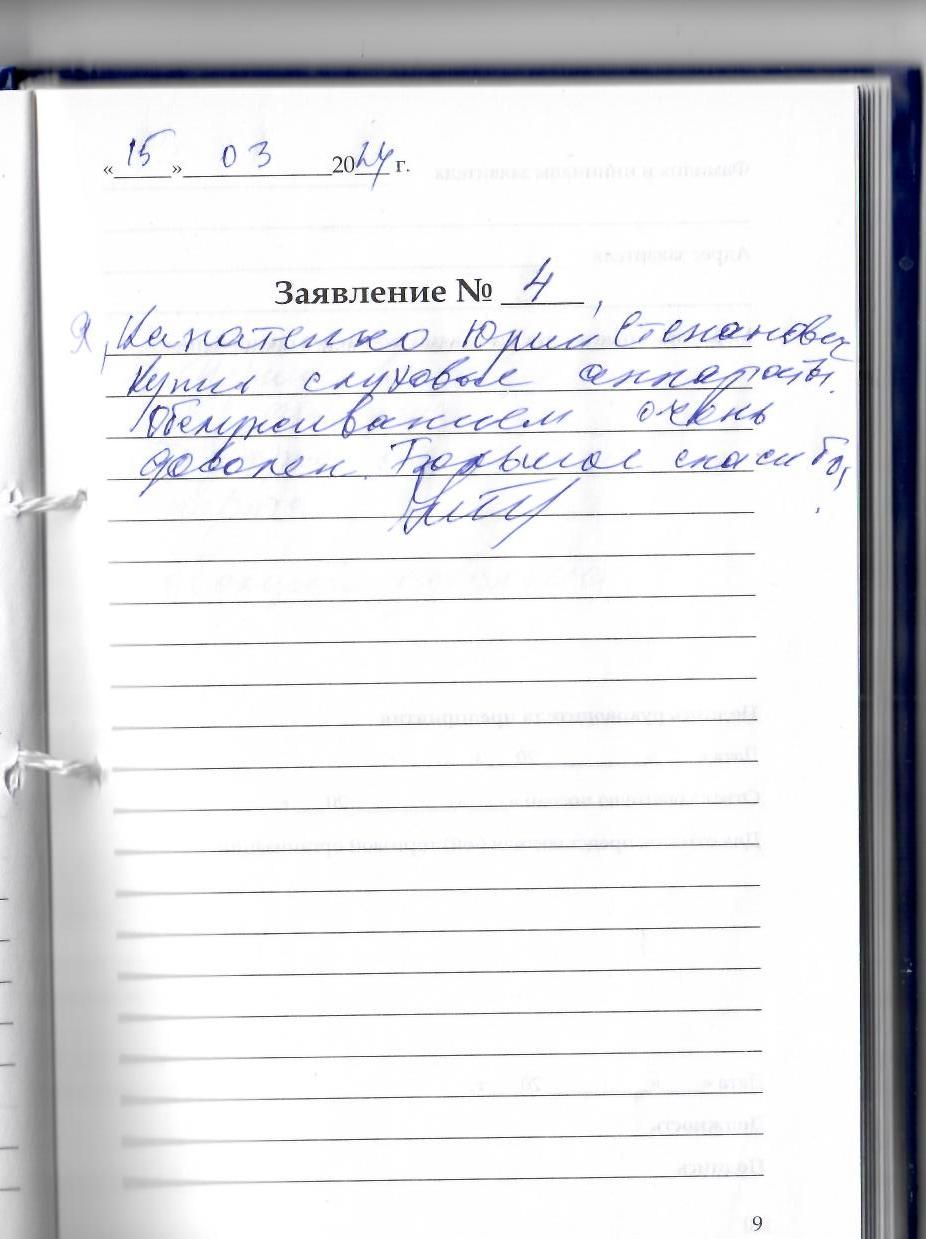 «15» 03 2024 г.
Заявление № 4
Я, Капатенко Юрий Степанович
купил слуховые аппараты.
Обслуживанием очень
доволен. Большое спасибо,
9